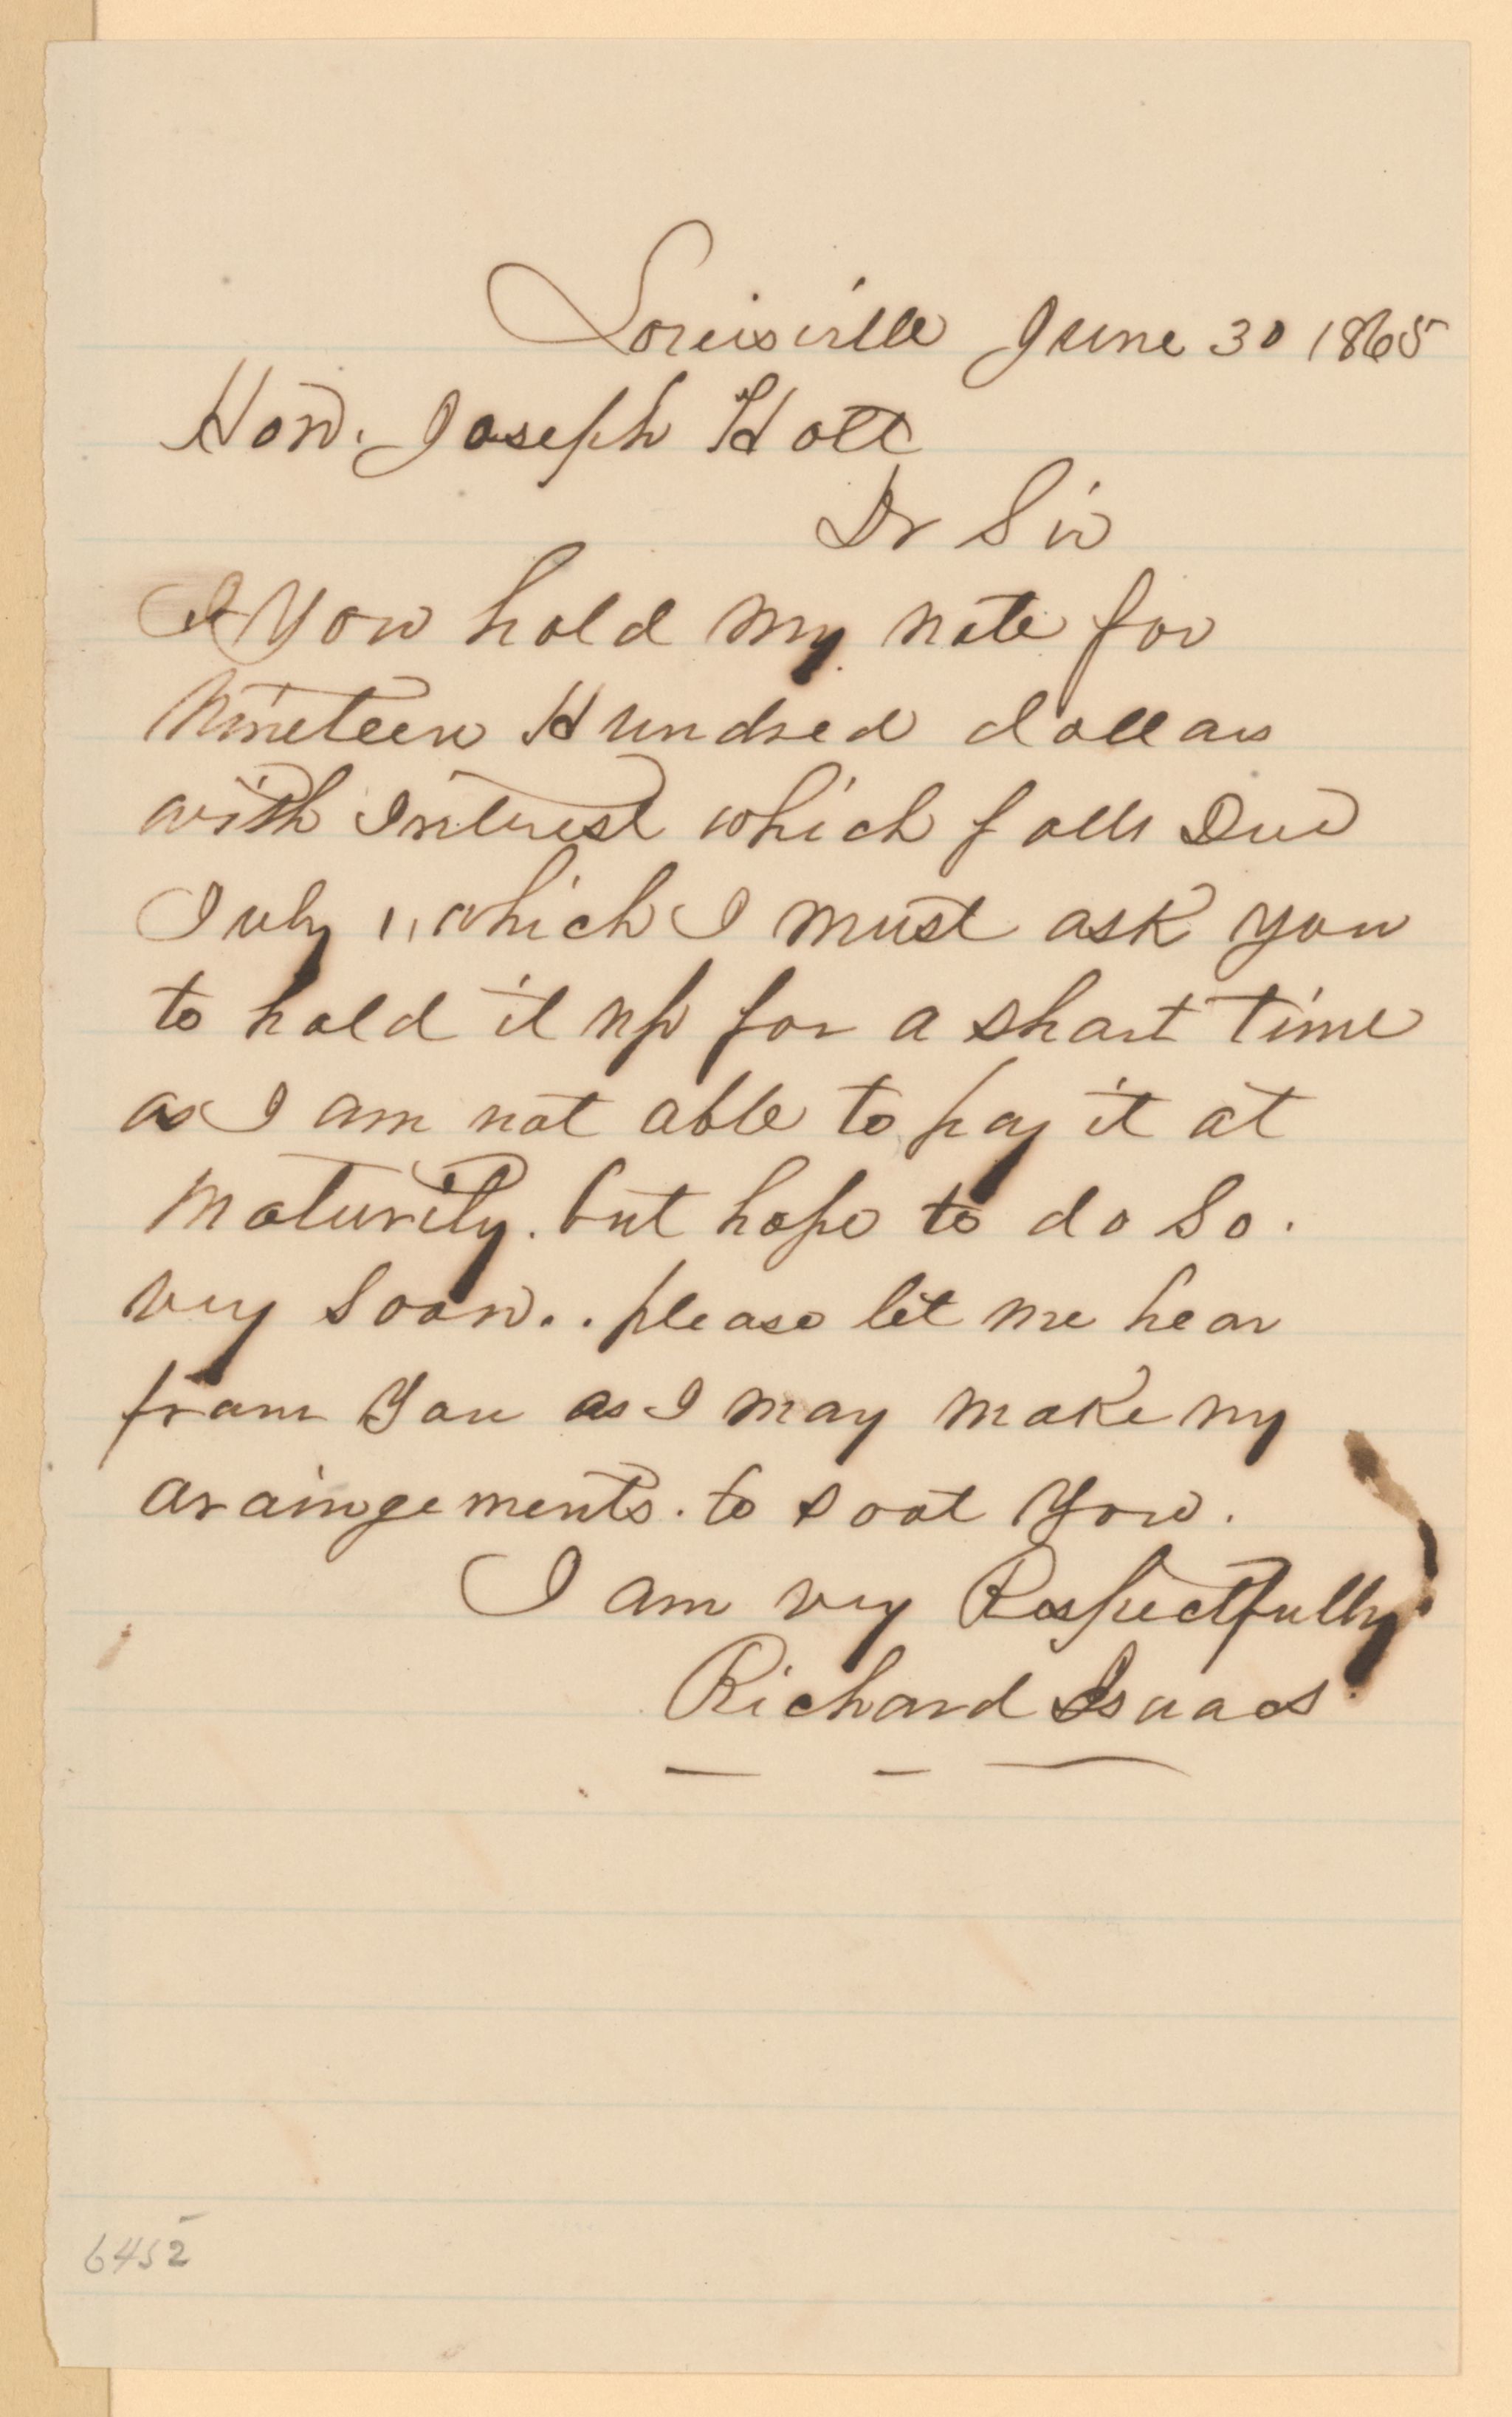 Louisville June 30 1865
Hon. Joseph Holt
Dr Sir
You hold my note for
Nineteen Hundred dollars
with Interest which falls Due
July 1, which I must ask you
to hold it up for a short time
as I am not able to pay it at
Maturity. but hope to do So.
very Soon.. please let me hear
from You as I may make my
araingements. to soot You.
I am very Respectfully
Richard Isaacs
6452